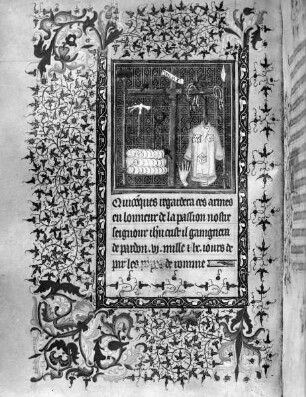 Quicoques regardera ces armes
en lonneur de la passion nostre
seignour ihu crist il gaaignera
de pardon .vi. mille
iours de
par les de romme